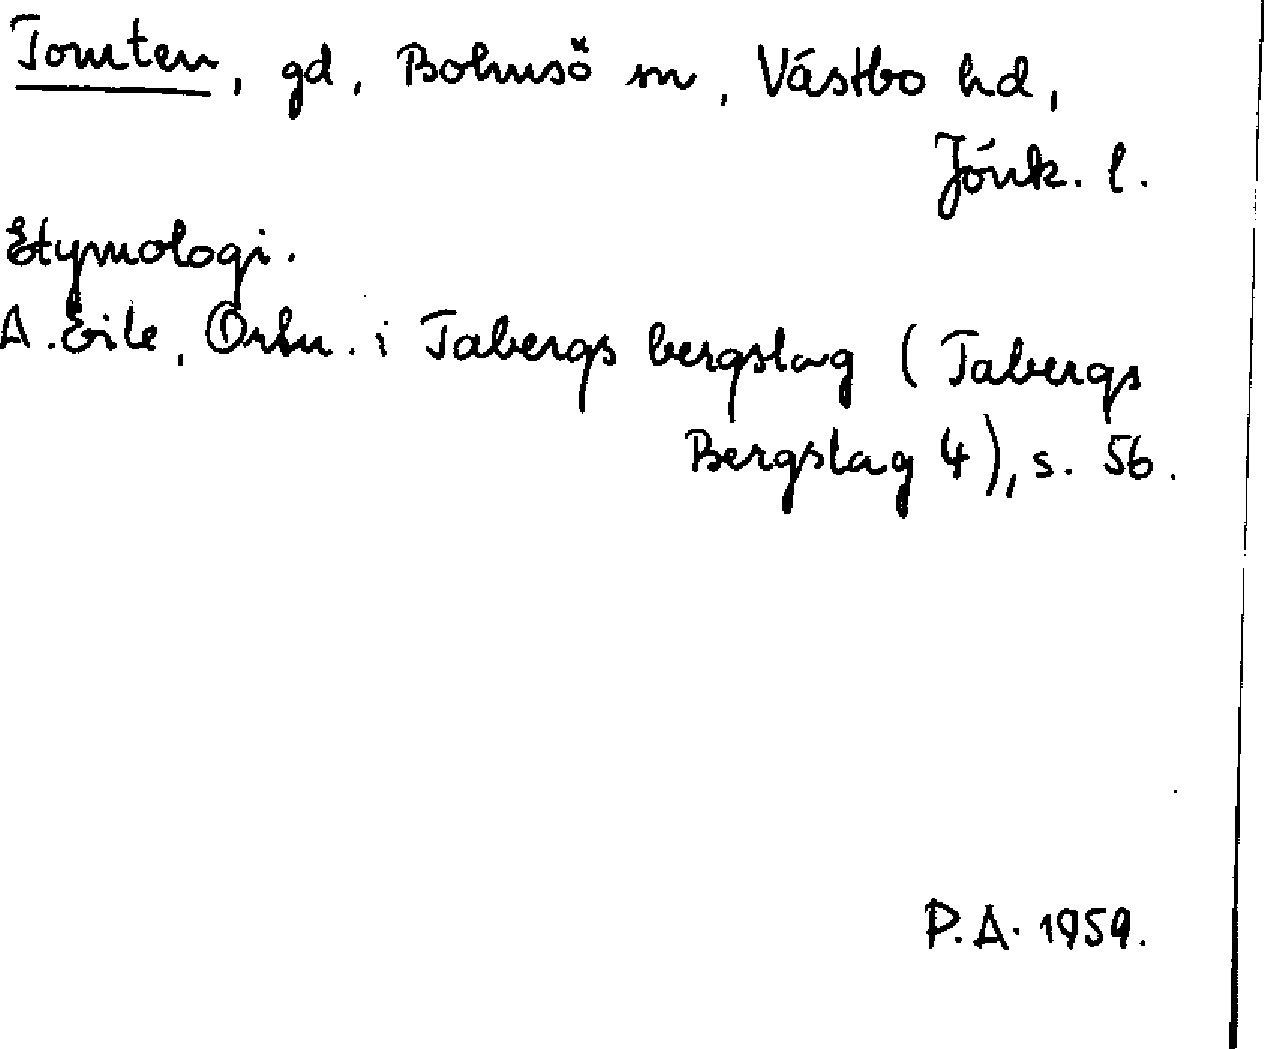 Tomten, gd, Bolmsö sn, Västbo hd,
Jönk. l.
Etymologi.
A. Eile, Ortn. i Tabergs bergslag (Tabergs
Bergslag 4), s. 56.
P.A. 1959.